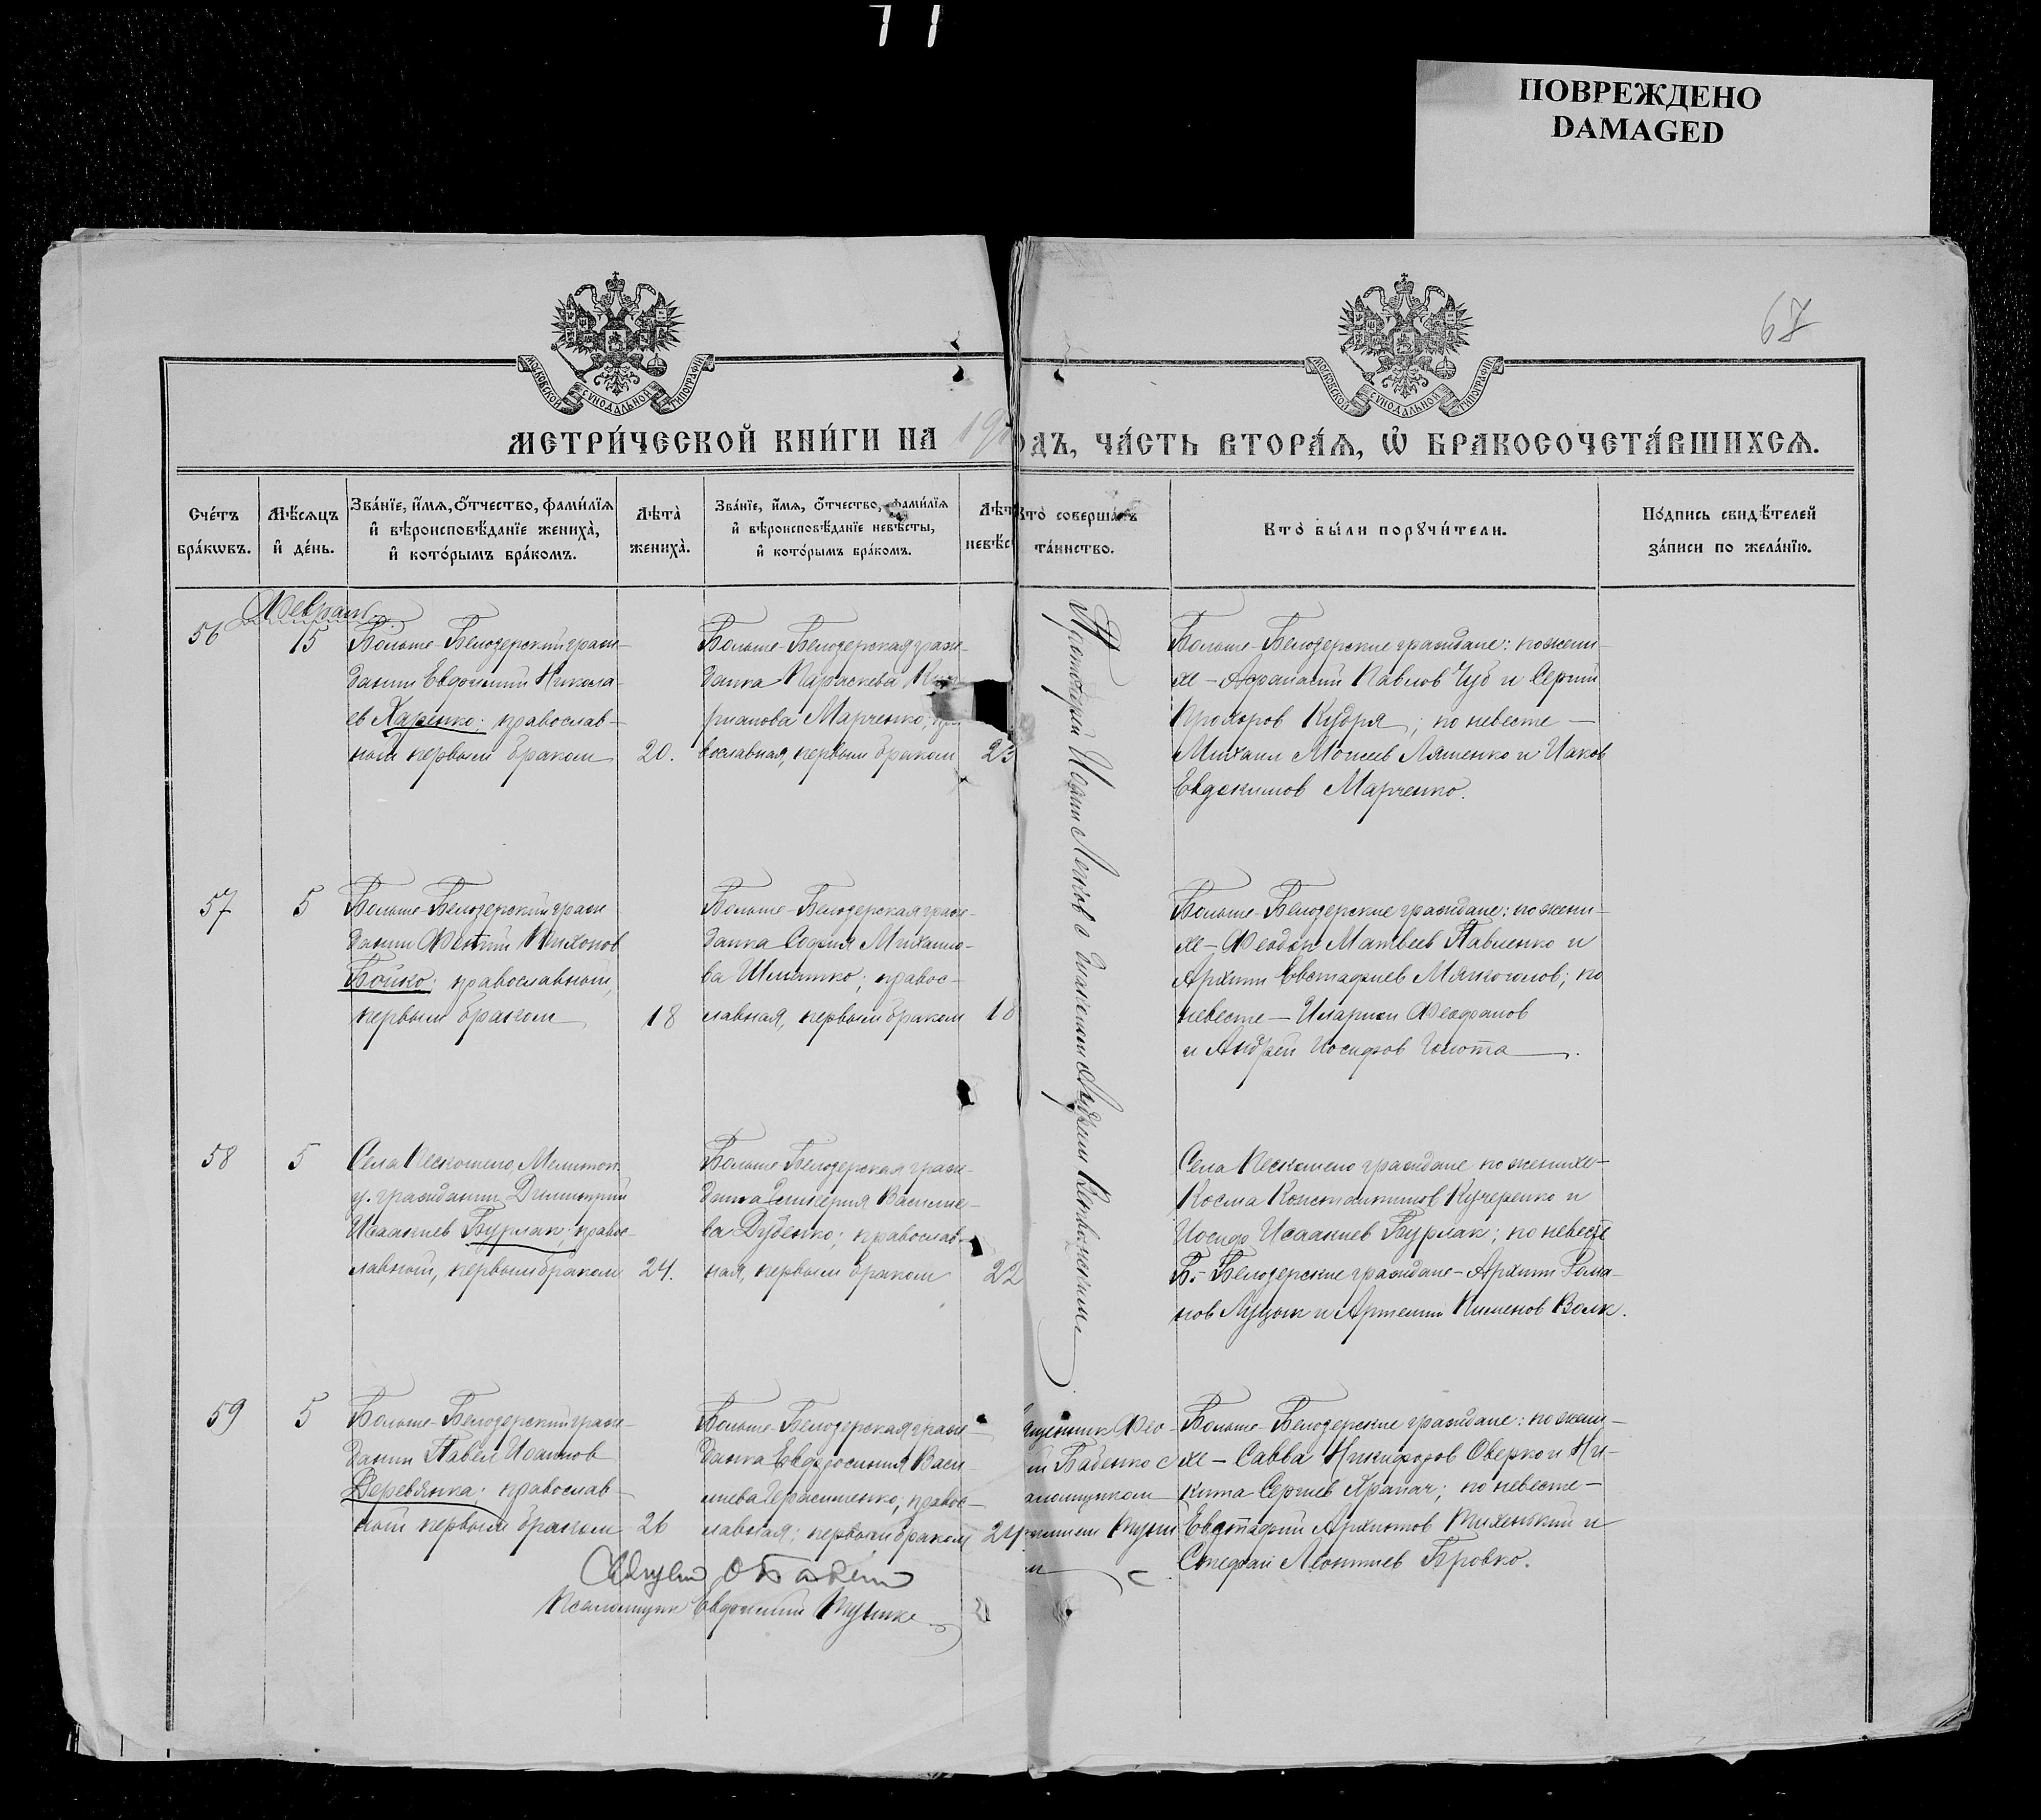 ПОВРЕЖДЕНО
DAMAGED
67
МОСКОВСКОЙ СУНОДАЛЬНОЙ ТИПОГРАФІИ
МОСКОВСКОЙ СУНОДАЛЬНОЙ ТИПОГРАФІИ
МЕТРИ́ЧЕСКОЙ КНИ́ГИ НА 19
ОДЪ, ЧА́СТЬ ВТОРА́Я, Ѿ БРАКОСОЧЕТА́ВШИХСЯ.
Сче́тъ бра́кωвъ.
Мѣ́сяцъ и҆ де́нь.
Зва́нїе, и҆́мя, ѻ҆́тчество, фами́лїя
и҆ вѣроисповѣ́данїе жениха̀,
и҆ кото́рымъ бра́комъ.
Лѣта̀ жениха̀.
Зва́нїе, и҆́мя, ѻ҆́тчество, фами́лїя
и҆ вѣроисповѣ́данїе невѣ́сты,
и҆ кото́рымъ бра́комъ.
Лѣт
невѣ́с
Кто̀ соверша́лъ
та́инство.
Кто̀ бы́ли порꙋчи́тели.
По́дпись свидѣ́телей
за́писи по жела́нїю.
Февраль
56
15
Больше-Белозерский граж-
данин Евфимий Никола-
ев Харенко; православ-
ный первым браком
20.
Больше-Белозерская граж-
данка Параскева
Марченко;
вославная, первым браком
23
Протоиерей Иоанн
Больше-Белозерские граждане: по жени-
хе – Афанасий Павлов Чуб и Сергий
Прохоров Кудря; по невесте –
Михаил Моисеев Ляшенко и Иаков
Евдокимов Марченко.
57
5
Больше-Белозерский граж
данин Тихонов
Бойко; православный,
первым браком
18
Больше-Белозерская граж-
данка София Михаило-
ва; правос-
лавная, первым браком
Больше-Белозерские граждане: по жени-
хе – Феодор Матвеев Павленко и
Архип Евстафиев; по
невесте – Иларион Феофанов
и Андрей Иосифов Голота.
58
5
Села Пескошено, Мелитоп.
у. гражданин Димитрий
Исаакиев Бурлак; правос-
лавный, первым браком
24.
Больше-Белозерская граж-
данка Гликерия Василие-
ва Дубенко; православ-
ная, первым браком
22
Села Пескошено граждане по женихе –
Косма Константинов Кучеренко и
Иосиф Исаакиев Бурлак; по невесте
Б.-Белозерские граждане – Архип Рома-
нов Луцык и Артемий Пименов Волк.
59
5
Больше-Белозерский граж-
данин Павел Иоаннов
Деревянка; православ-
ный первым браком
26
Больше-Белозерская граж-
данка Евфросиния Васи-
лиева Герасименко; правос-
лавная; первым браком
24
щенник Фео-
Бабенко с
аломщиком
Больше-Белозерские граждане: по жени-
хе – Савва Никифоров Оверко и Ни-
кита Сергиев Арапач; по невесте –
Евстафий Архипов Тихенький и
Стефан Леонтиев Бровко.
Псаломщик Евфимий